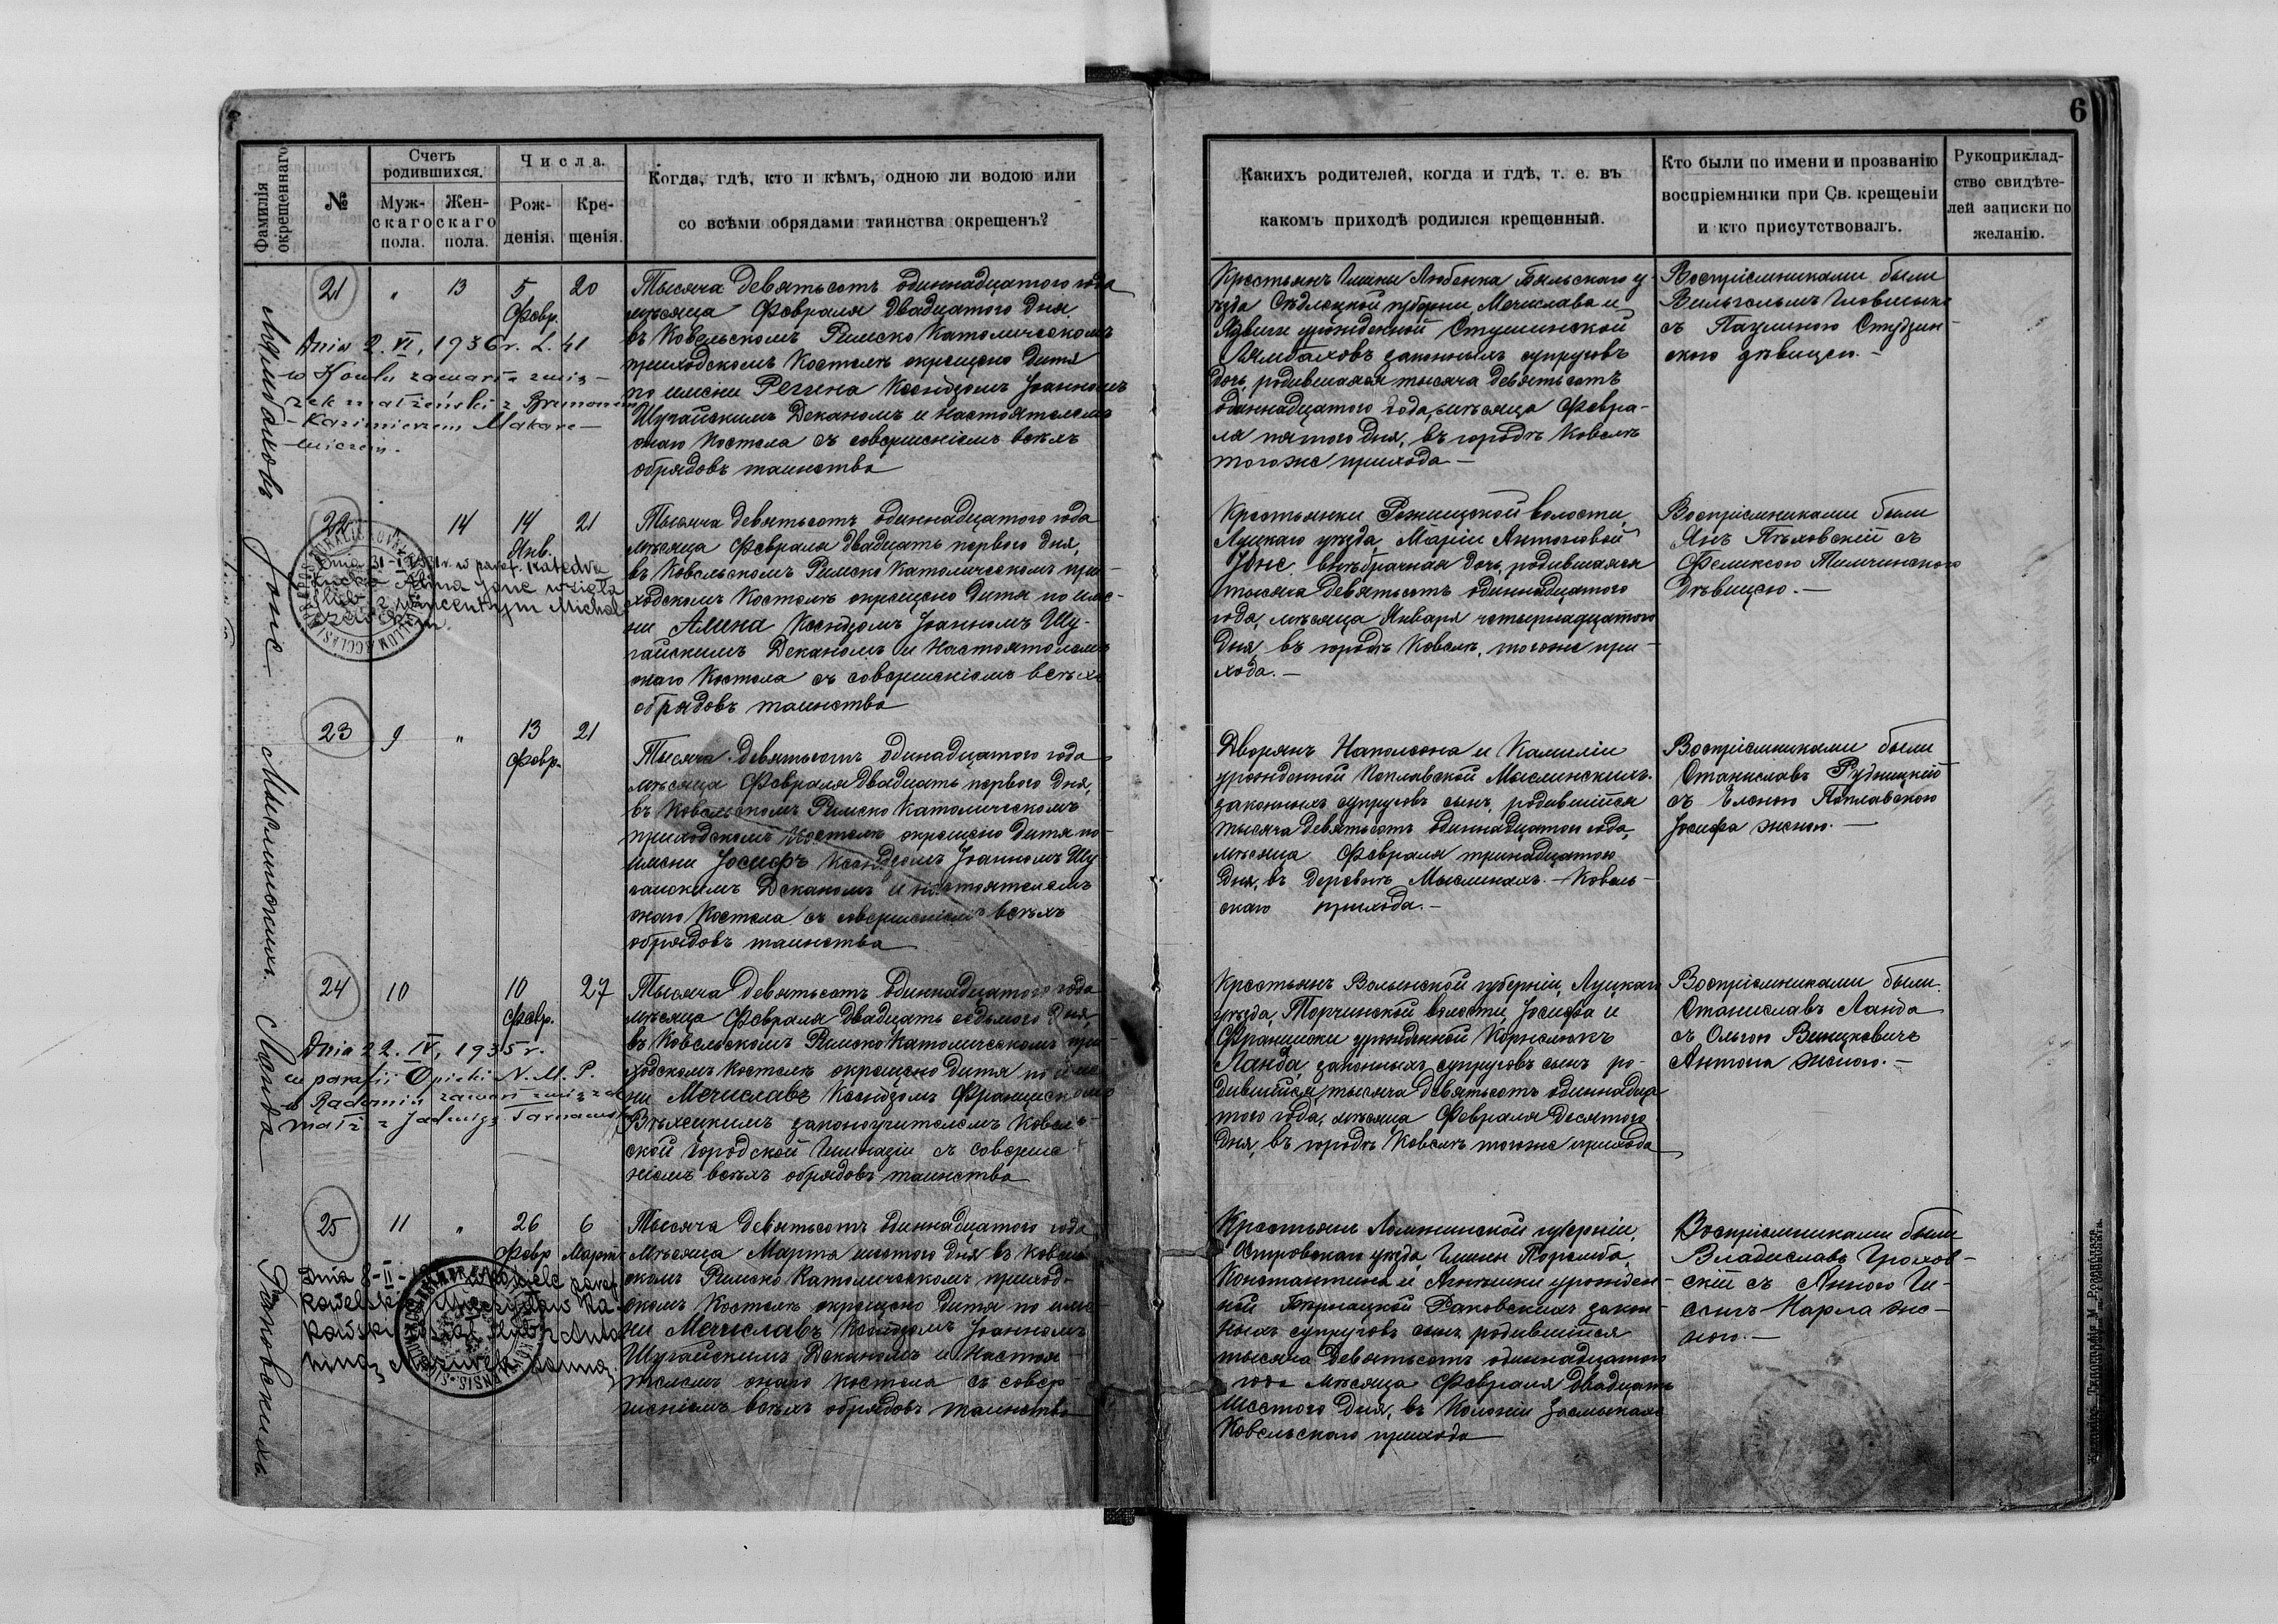 6
Фамилія окрещеннаго
№
Счетъ родившихся.
Муж-
скаго
пола.
Жен-
скаго
пола.
Числа.
Рож-
денія.
Кре-
щенія.
Когда, гдѣ, кто и кѣмъ, одною ли водою или
со всѣми обрядами таинства окрещенъ?
Какихъ родителей, когда и гдѣ, т. е. въ
какомъ приходѣ родился крещенный.
Кто были по имени и прозванію
воспріемники при Св. крещеніи
и кто присутствовалъ.
Рукоприклад-
ство свидѣте-
лей записки по
желанію.
21 " 13 5 20
Февр.
Dnia 2. VI, 1936 r. L. 41
w Kowlu zawarła zwią-
zek małżeński z Brunonem
Kazimierzem Makare-
wiczem.
Тысяча девятьсотъ одиннадцатого года
мѣсяца Февраля двадцатого дня
въ Ковельскомъ Римско Католическомъ
приходскомъ Костелѣ окрещено дитя
по имени Регина Ксендзомъ Іоанномъ
Шугайскимъ Деканомъ и Настоятелемъ
онаго Костела съ совершеніемъ всѣхъ
обрядовъ таинства
Крестьянъ Гмины Любенка Бяльскаго у-
ѣзда Сѣдлецкой губерніи, Мечислава и
Ядвиги урожденной Стушинской
законныхъ супруговъ
дочь, родившаяся тысяча девятьсотъ
одиннадцатого года, мѣсяца Февра-
ля пятого дня, въ городѣ Ковелѣ
тогоже прихода —
Воспріемниками были
Вильгельмъ
съ Паулиною Студзин-
скою дѣвицею. —
22 14 14 21
Янв.
Jone wzięła
ślub z Wincentym Michal-
czewskim.
Іоне
Тысяча девятьсотъ одиннадцатого года
мѣсяца Февраля двадцать перваго дня,
въ Ковельскомъ Римско Католическомъ при-
ходскомъ Костелѣ окрещено дитя по име-
ни Алина Ксендзомъ Іоанномъ Шу-
гайскимъ Деканомъ и Настоятелемъ
онаго Костела съ совершеніемъ всѣхъ
обрядовъ таинства
Крестьянки Рожищской волости,
Луцкаго уѣзда, Маріи Антоновой
Іоне внѣбрачная дочь, родившаяся
тысяча девятьсотъ одиннадцатого
года, мѣсяца Января четырнадцатого
дня, въ городѣ Ковелѣ, тогоже при-
хода. —
Воспріемниками были
Янъ Пѣховскій съ
Феликсою Тимчинскою
Дѣвицею. —
23 9 " 13 21
Февр.
Мыслинскихъ.
Тысяча девятьсотъ одинадцатого года
мѣсяца Февраля двадцать перваго дня,
въ Ковельскомъ Римско Католическомъ
приходскомъ Костелѣ окрещено дитя по
имени Іосифъ Ксендзомъ Іоанномъ Шу-
гайскимъ Деканомъ и Настоятелемъ
онаго Костела съ совершеніемъ всѣхъ
обрядовъ таинства
Дворянъ Наполеона и Камиліи
урожденной Поплавской Мыслинскихъ
законныхъ супруговъ сынъ, родившійся
тысяча девятьсотъ одиннадцатого года,
мѣсяца Февраля тринадцатого
дня, въ деревнѣ Мыслинахъ. — Ковель-
скаго прихода. —
Воспріемниками были
Станиславъ Рудницкій
съ Еленою Поплавскою
Іосифа женою. —
24 10 10 27
Февр.
Dnia 22. IV, 1935 r.
w parafii Opieki N. M. P.
w Radomiu zawarł związek
małż. z Jadwigą Tarnawską
Ланда
Тысяча девятьсотъ одиннадцатого года
мѣсяца Февраля двадцать седьмого дня,
въ Ковельскомъ Римско Католическомъ при-
ходскомъ Костелѣ окрещено дитя по име-
ни Мечиславъ Ксендзомъ Францискомъ
законоучителемъ Ковель-
ской городской Гимназіи съ соверше-
ніемъ всѣхъ обрядовъ таинства
Крестьянъ Волынской губерніи, Луцкаго
уѣзда, Торчинской волости, Іосифа и
Франциски урожденной Корнелюкъ
Ланда, законныхъ супруговъ сынъ, ро-
дившійся тысяча девятьсотъ одиннадца-
того года, мѣсяца Февраля десятого
дня, въ городѣ Ковелѣ тогоже прихода
Воспріемниками были
Станиславъ Ланда
съ Ольгою Винцкевичъ
Антона женою. —
25 11 " 26 6
Февр. Марта
Dnia 8-II-
Раковскихъ
Тысяча девятьсотъ одиннадцатого года
Мѣсяца Марта шестого дня въ Ковель-
скомъ Римско Католическомъ приход-
скомъ Костелѣ окрещено дитя по име-
ни Мечиславъ Ксендзомъ Іоанномъ
Шугайскимъ Деканомъ и Настоя-
телемъ онаго Костела съ совер-
шеніемъ всѣхъ обрядовъ таинства
Крестьянъ Ломжинской губерніи,
Островскаго уѣзда, Гмины Поремба,
Константина и Агнешки урожден-
ной Раковскихъ закон-
ныхъ супруговъ сынъ, родившійся
тысяча девятьсотъ одиннадцатого
года мѣсяца Февраля двадцать
шестого дня, въ Колоніи Засмыкахъ
Ковельскаго прихода
Воспріемниками были
Владиславъ Грохов-
скій съ Анною Ги-
Карла же-
ною. —